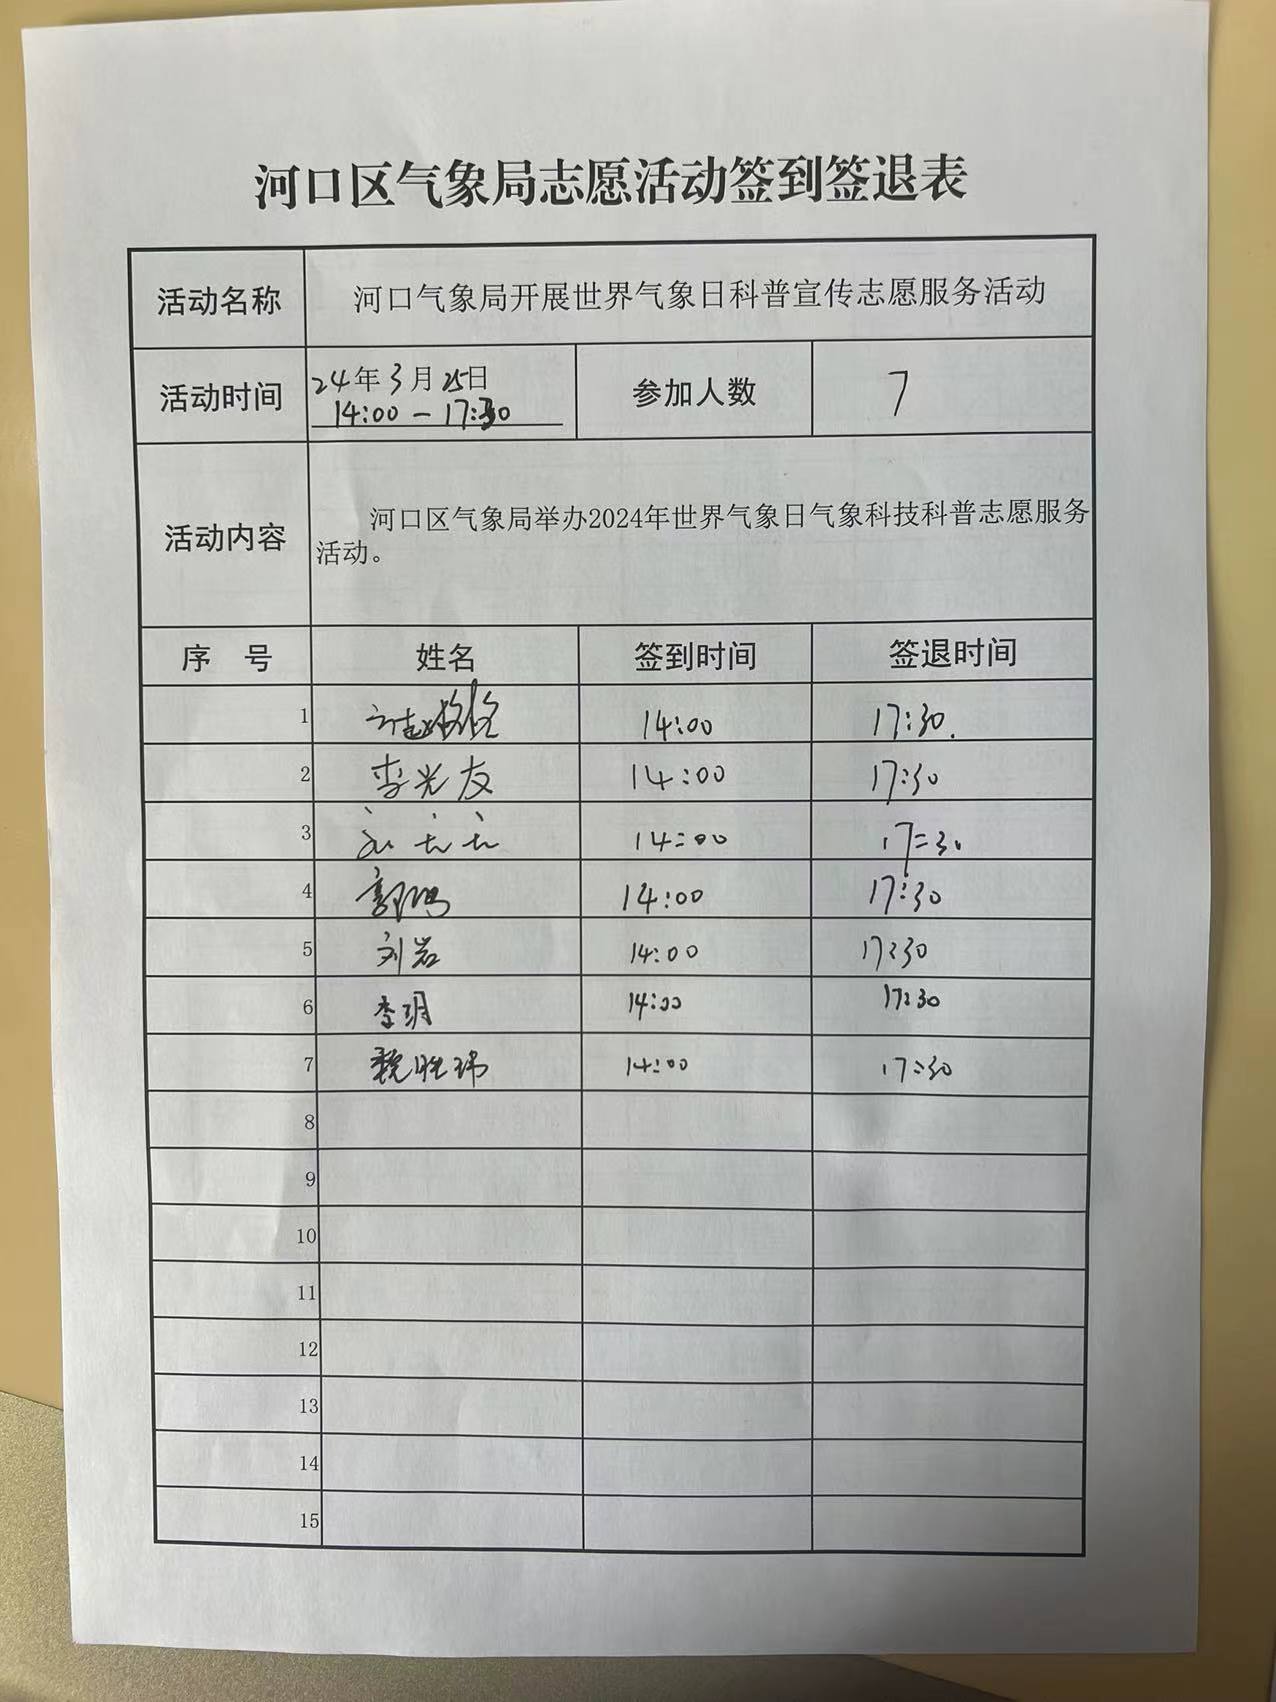 河口区气象局志愿活动签到签退表
活动名称 河口气象局开展世界气象日科普宣传志愿服务活动
活动时间 24年3月25日 参加人数 7
14:00-17:30
活动内容 河口区气象局举办2024年世界气象日气象科技科普志愿服务
活动。
序 号 姓名 签到时间 签退时间
1 14:00 17:30.
2 李光友 14:00 17:30
3 14:00 17:30
4 14:00 17:30
5 刘岩 14:00 17:30
6 李玥 14:00 17:30
7 魏胜玮 14:00 17:30
8
9
10
11
12
13
14
15